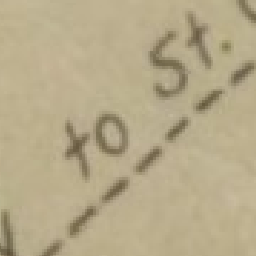 to St.